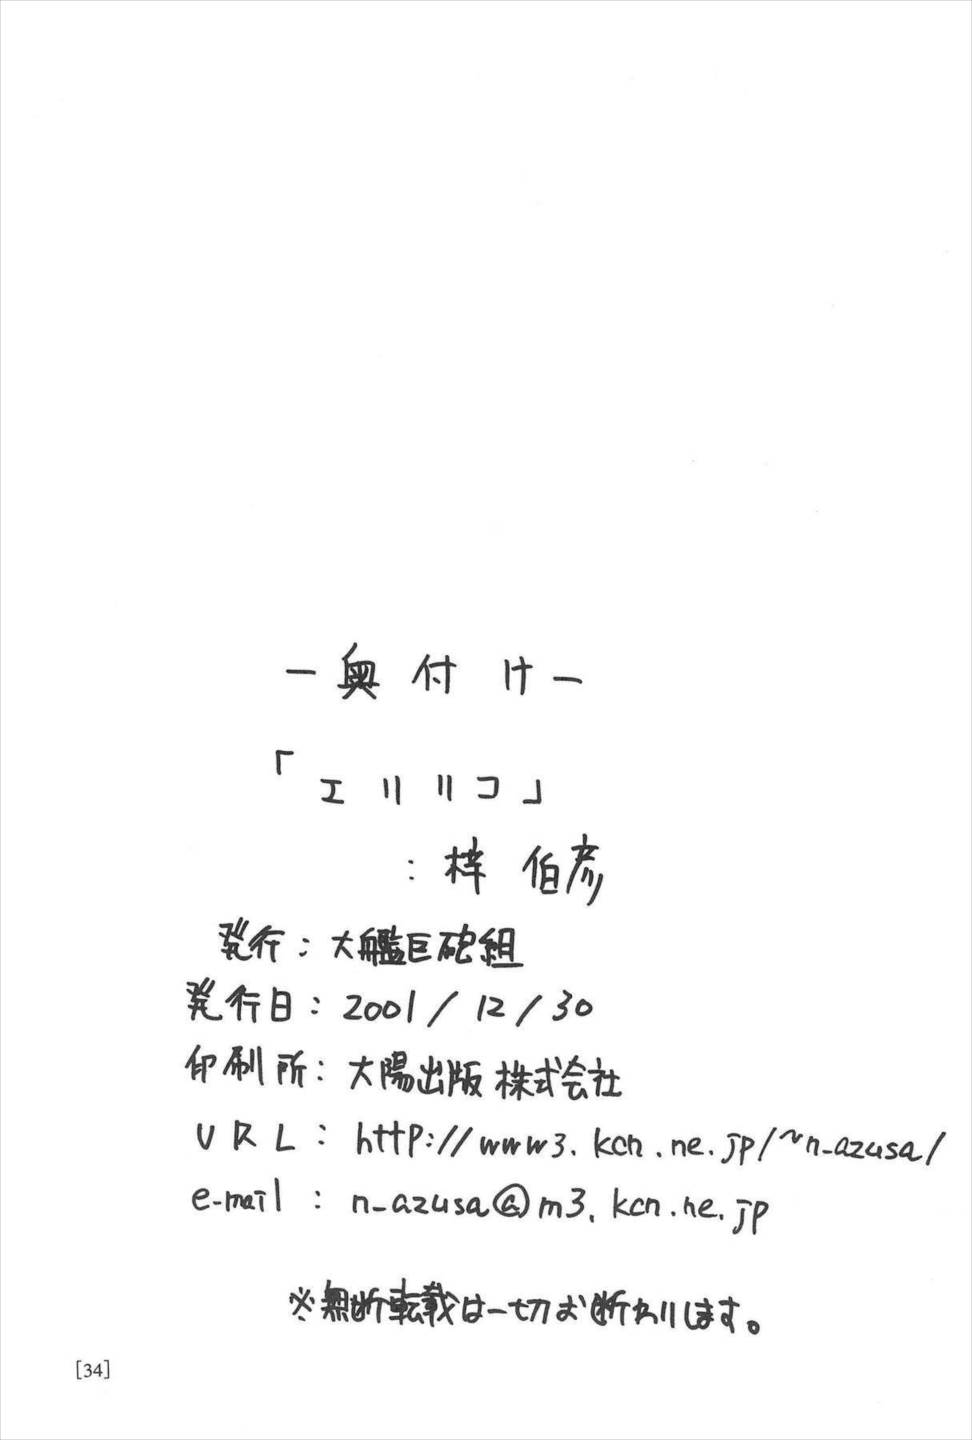 ー奥付けー
「エリリコ」
：梓 伯彦
発行：大艦巨砲組
発行日：2001/12/30
印刷所：大陽出版株式会社
URL：http://www3.kcn.ne.jp/~n_azusa/
e-mail：n_azusa@m3.kcn.ne.jp
※無断転載は一切お断わりします。
[34]